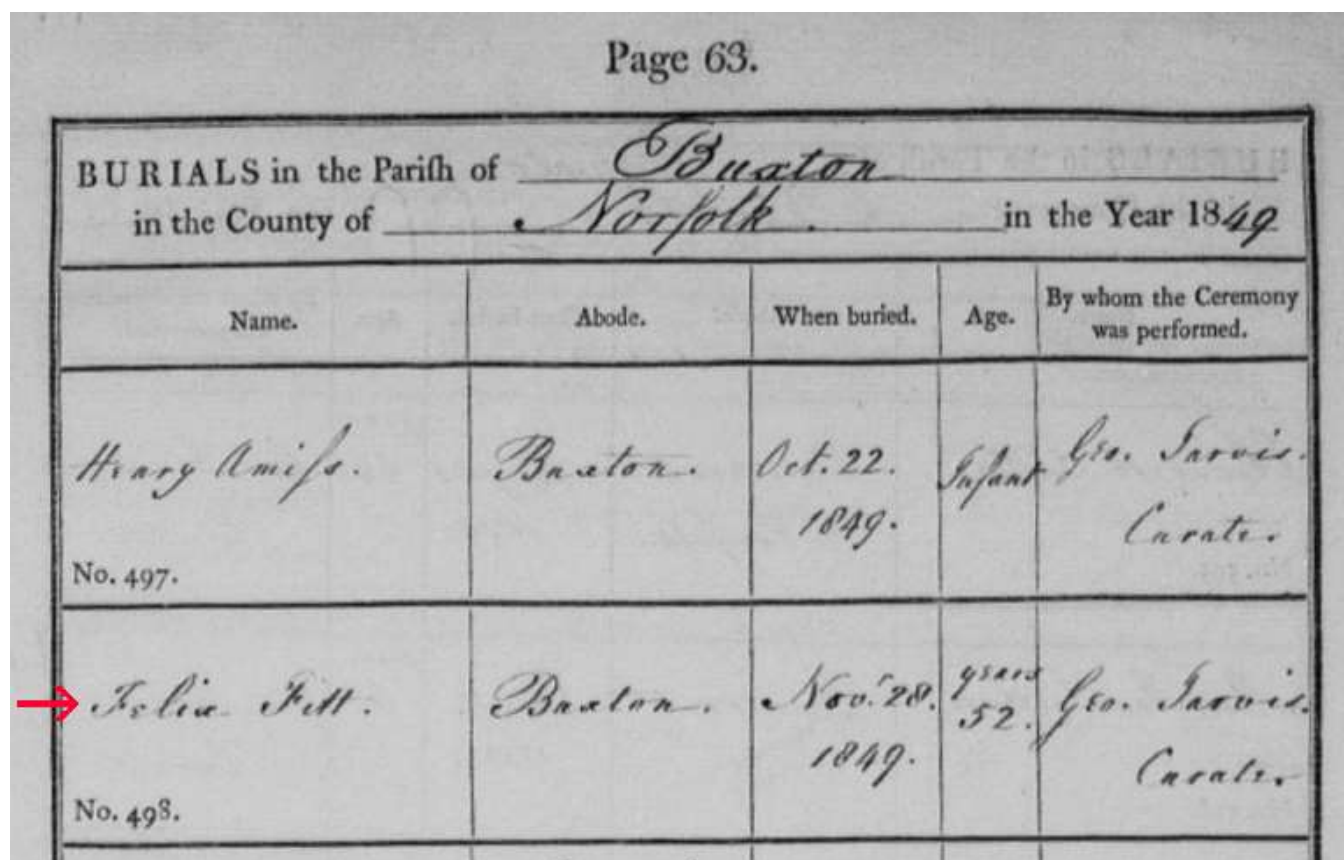 Page 63.
BURIALS in the Pariſh of Buxton
in the County of Norfolk. in the Year 1849
Name. Abode. When buried. Age. By whom the Ceremony was performed.
Henry Amiſs. Buxton. Oct. 22. 1849. Infant Geo. Jarvis. Curate.
No. 497.
Felix Fitt. Buxton. Novr. 28. 1849. years 52. Geo. Jarvis. Curate.
No. 498.